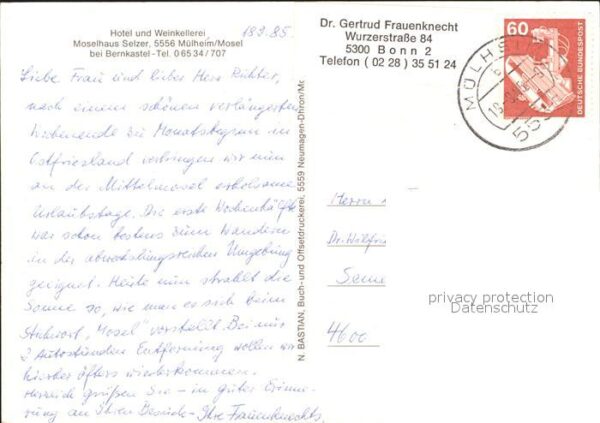 Hotel und Weinkellerei
Moselhaus Selzer, 5556 Mülheim/Mosel
bei Bernkastel-Tel. 0 65 34 / 707
18.9.85.
Liebe Frau und lieber Herr Richter,
nach einem schönen verlängerten
Wochenende zu Monatsbeginn in
Ostfriesland verbringen wir nun
an der Mittelmosel erholsame
Urlaubstage. Die erste Wochenhälfte
war schon bestens zum Wandern
in der abwechslungsreichen Umgebung
geeignet. Heute nun strahlt die
Sonne so, wie man es sich beim
Stichwort "Mosel" vorstellt. Bei nur
2 Autostunden Entfernung wollen wir
hierher öfters wiederkommen.
Herzlich grüßen Sie - in guter Erinne-
rung an Ihren Besuch - Ihre Frauenknechts.
N. BASTIAN, Buch- und Offsetdruckerei, 5559 Neumagen-Dhron/Mo
Dr. Gertrud Frauenknecht
Wurzerstraße 84
5300 Bonn 2
Telefon (02 28) 35 51 24
60
DEUTSCHE BUNDESPOST
MÜLHE
Herrn
Dr. Wolfri
Seme
4600
privacy protection
Datenschutz